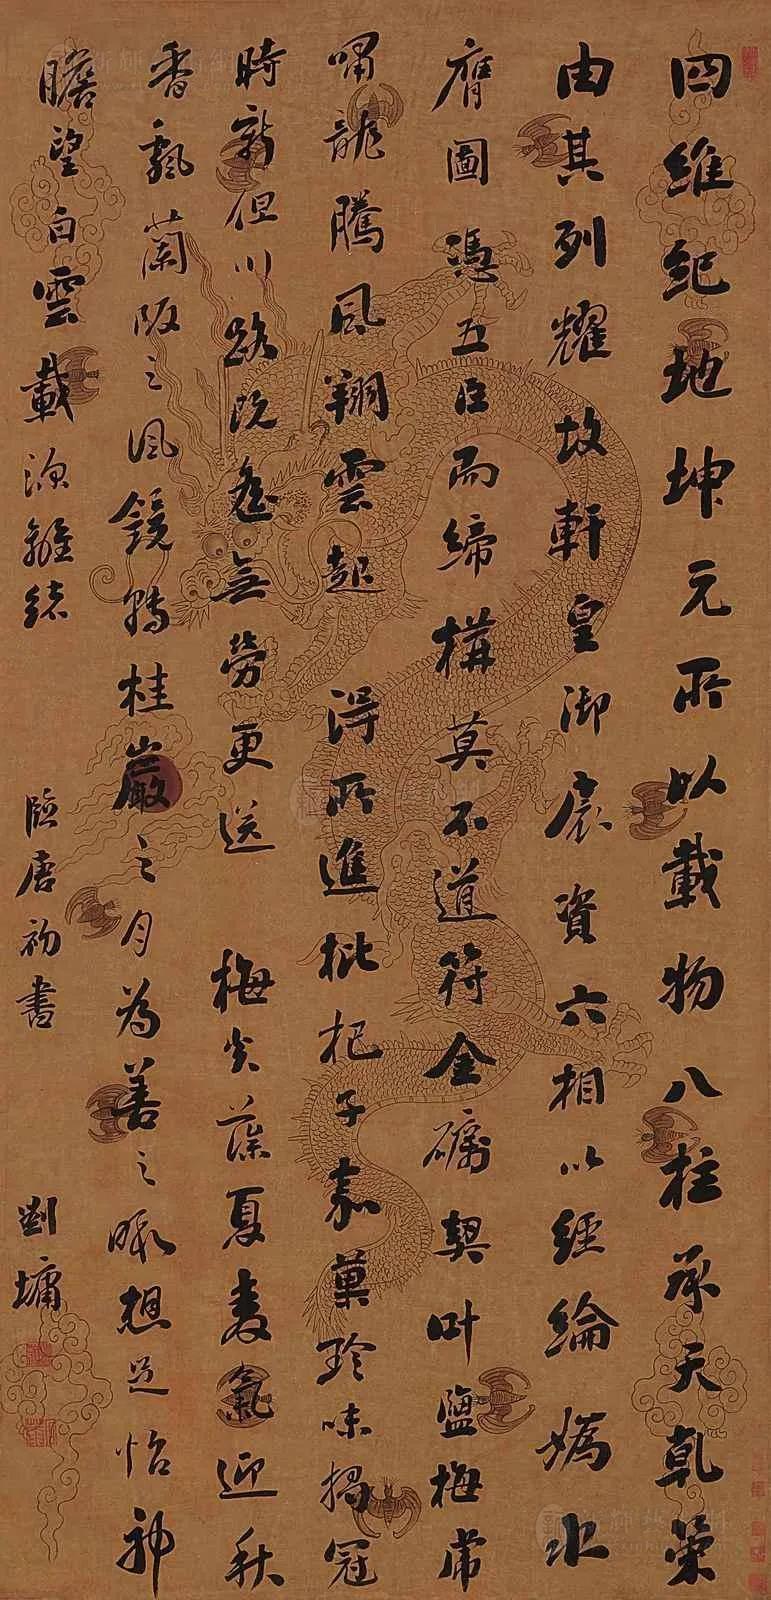 四維紀地坤元所以載物八柱承天乾策
由其列耀故軒皇御扆資六相以經綸媯水
膺圖憑五臣而締構莫不道符金礪契叶鹽梅席
嘯龍騰風翔雲起 得所進枇杷子嘉菓珍味揭冠
時新但川路既遙無勞更送 梅炎落夏麦氣迎秋
香飄蘭阪之風鏡轉桂巖之月為善之暇想足怡神
瞻望白雲載深離緒
臨唐初書
劉墉